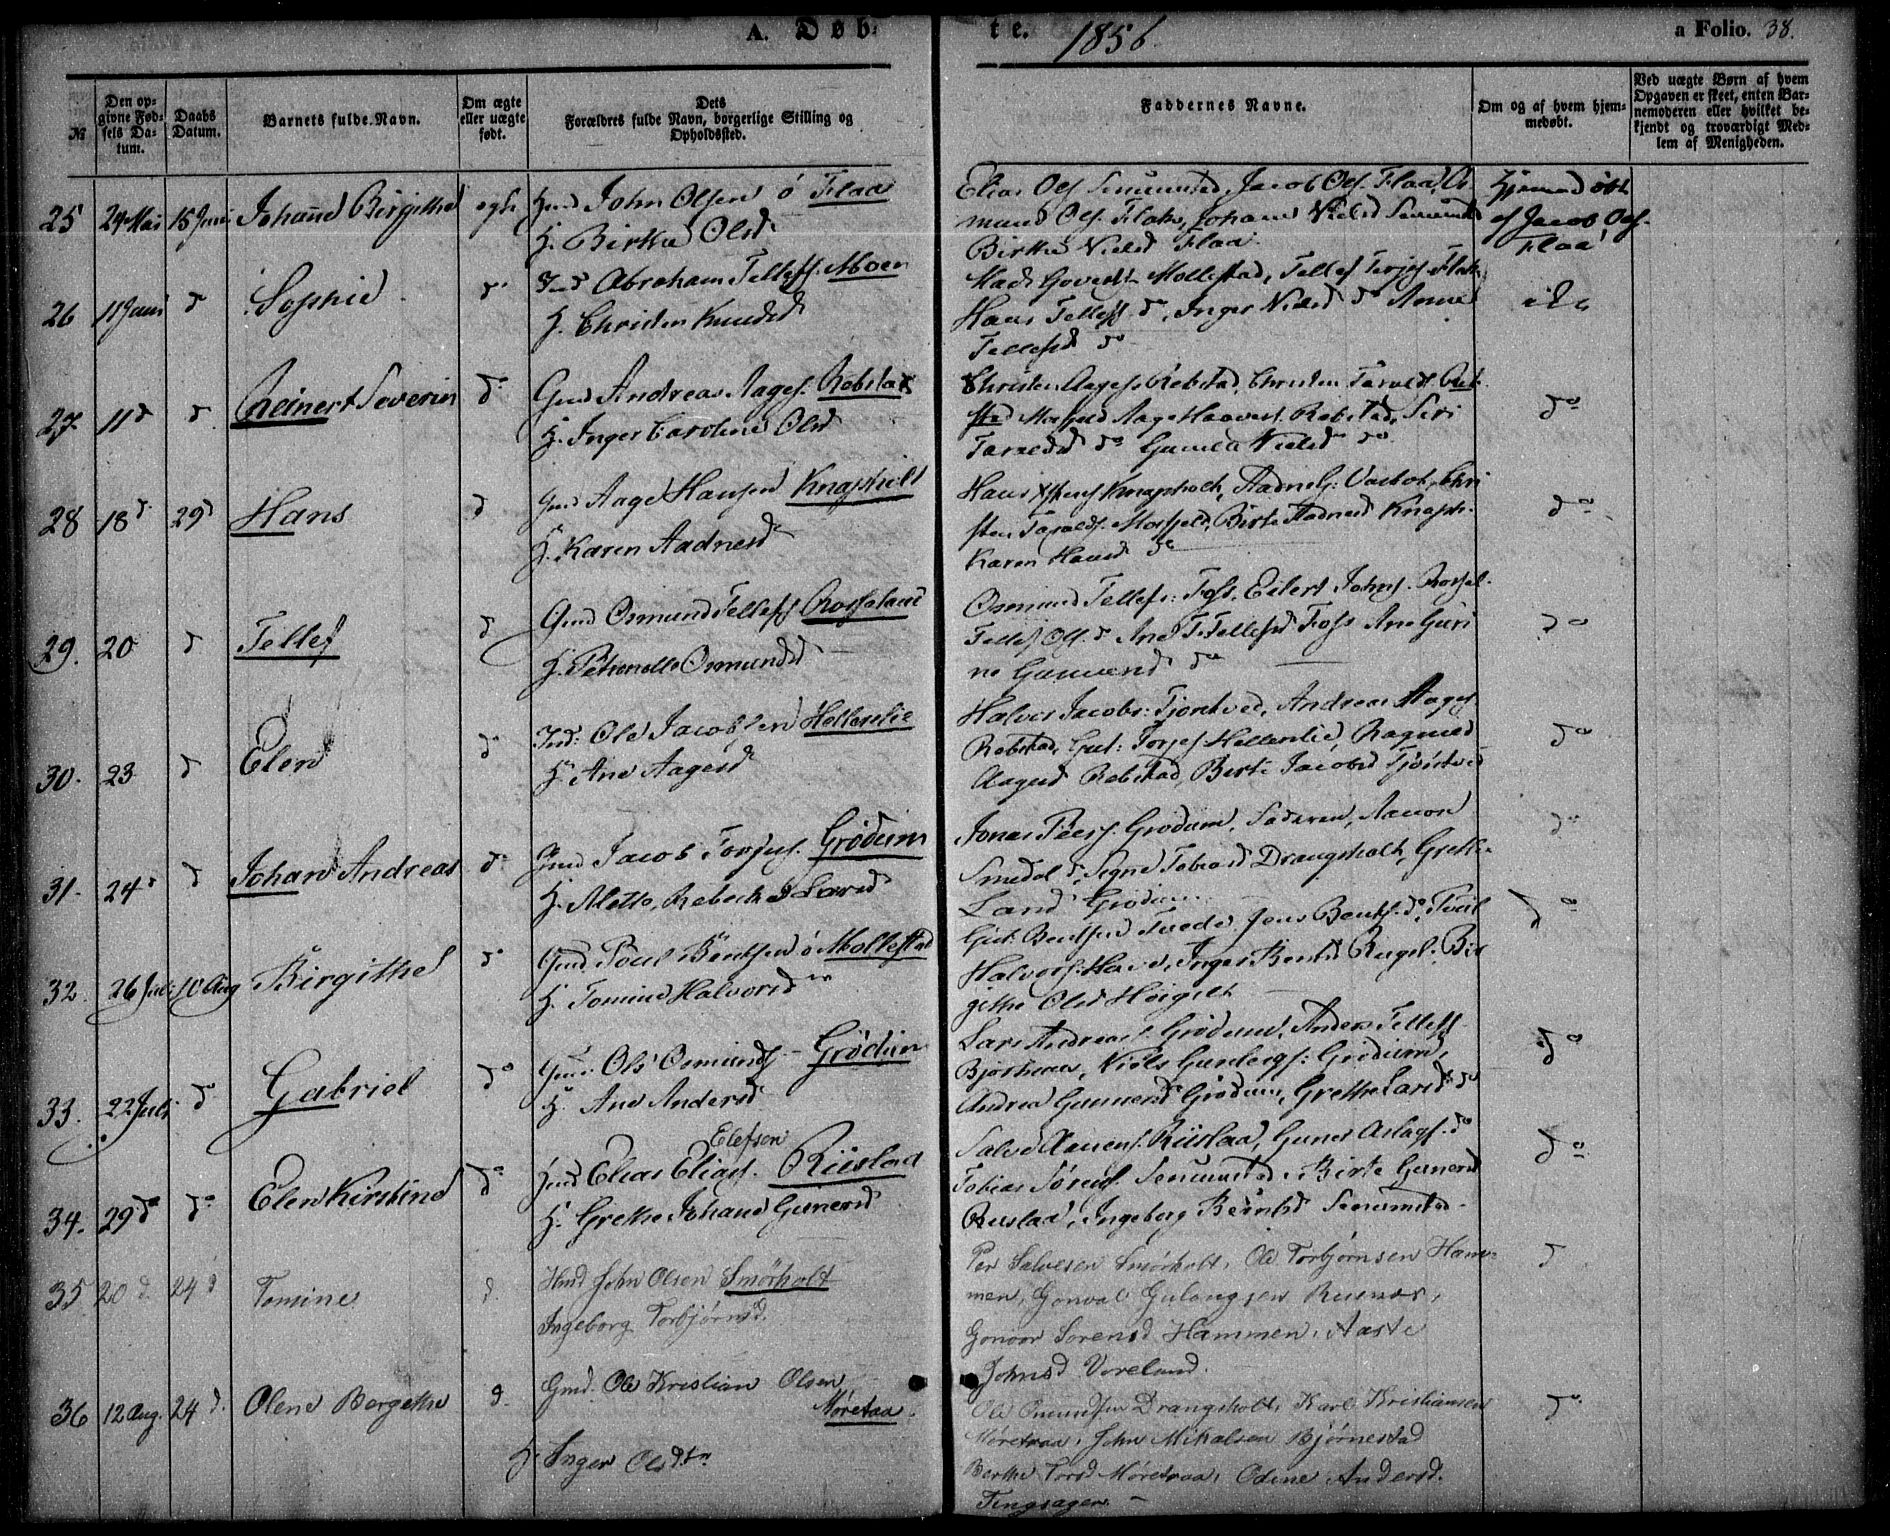 A. Døb-
te. 1856.
a Folio. 38.
№
Den op-
givne Fød-
sels Da-
tum.
Daabs
Datum.
Barnets fulde Navn.
Om ægte
eller uægte
født.
Dets
Forældres fulde Navn, borgerlige Stilling og
Opholdssted.
Faddernes Navne.
Om og af hvem hjem-
medøbt.
Ved uægte Børn af hvem
Opgaven er skeet, enten Bar-
nemoderen eller hvilket be-
kjendt og troværdigt Med-
lem af Menigheden.
25 24 Mai 15 Juni Johanne Birgithe egte John Olsen ø Flaa
H. Birthe Olsd
Elias Ols Senumstad, Jacob Ols. Flaa, Os-
mund Ols. Flak, Johanne Nielsd Senumst
Birthe Nielsd Flaa.
Hjemmedøbt
af Jacob Ols.
Flaa
26 11 Juni d Sophie d Abraham Tellefs. Moen
H. Christen Knudsd
Mads Govertsn Mollestad, Tellef Terjes Flak
Hans Tellefs d, Inger Nielsd do Anne
Tellefsd do
ikke
27 11 d d Reinert Severin do Gmd Andreas Aages. Rebstad
H. Inger Caroline Olsd
Christen Aages Rebstad, Christen Taralds. Reb
sted Mosfjeld Aage Haavors. Rebstad, Siri
Taraldsd do Gunild Nielsd do
do
28 18 d 29 d Hans d Gmd Aage Hansen Knapholt
H. Karen Aadnesd
Hans Knapholt, Aadne G. Vatbot, Chri
sten Taralds. Mosfjeld, Birte Aadnesd Knaph.
Karen Hansd do
do
29. 20 d Tellef d Gmd Osmund Tellefs Rosseland
H. Petronelle Osmundsd
Osmund Tellefs. Foss, Eilert Johns. Rossel.
Tellef Ols. d Ane T. Tellefsd Foss Ane Guri
ne Gunnersd do
do
30. 23 d Elen d Ind: Ole Jacobsen Hellerslie
H. Ane Aagesd
Halvor Jacobs: Tjomtved, Andreas Aages
Rebstad, Gut: Torjes Hellerslie, Ragnild
Aagesd Rebstad, Birte Jacobsd Tjomtved
do
31. 24 d d Johan Andreas do Gmd Jacob Torjus. Grødum
H. Alette Rebecka Larsd
Jonas Peers. Grødum, Faderen, Aanon
Smedal d, Signe Tobiasd Drangsholt, Grethe
Larsd Grødum.
do
32. 26 Juli 10 Aug Birgithe do Gmd Poul Bentsen ø Mollestad
H. Tomine Halvorsd
Gut. Bentsen Tvede, Jens Bents. do,
Halvors. d, Inger Bentsd Rugsl. Bir
githe Olsd Høigilt
do
33. 22 Juli do Gabriel do Gmd. Ole Osmunds. Grødum
H. Ane Andersd
Lars Andreas Grødum, Anders Tellefs
Niels Gunders: Grødum,
Andrea Gunnersd Grødum, Grethe Larsd do
do
34. 29 do do Elen Kirstine do Gmd Elias Elias. Elefsen Riislaa
H. Grethe Johanne Gunersd
Salve Aanens. Riislaa, Guner Aslags. do
Tobias Sørens Senumstad, Birte Gunersd
Riislaa, Ingeborg Berntsd Senumstad.
do
35 20 d. 24 d Tomine d. Hmd John Olsen Smørholt
Ingeborg Torbjørnsd.
Per Salvesen Smørholt, Ole Torbjørnsen Ham-
men, Gonval Gulaugsen Rusnes,
Gonvor Sørensd Hammen, Aaste
Johnsd Vereland.
d
36 12 Aug. 24 d. Olene Bergethe d. Gmd. Ole Kristian Olsen
Møretraa.
H. Inger Olsdtr
Ole Omundsen Drangsholt, Karl Kristiansen
Møretraa, John Mikalsen Bjørnestad
Berthe Torsd Møretraa, Odine Andersd.
Tingsager.
do